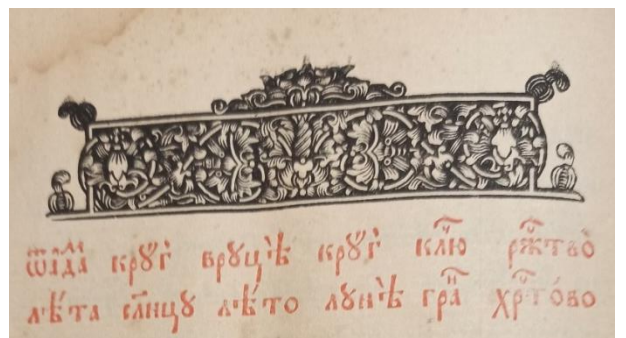 ѿада́ма крꙋ́гъ врꙋцѣ̀ крꙋ́гъ клю́ рж҃тво̀
лѣ́та сл҃нцꙋ лѣ́то лꙋнѣ̀ гра́н хр҃то́во